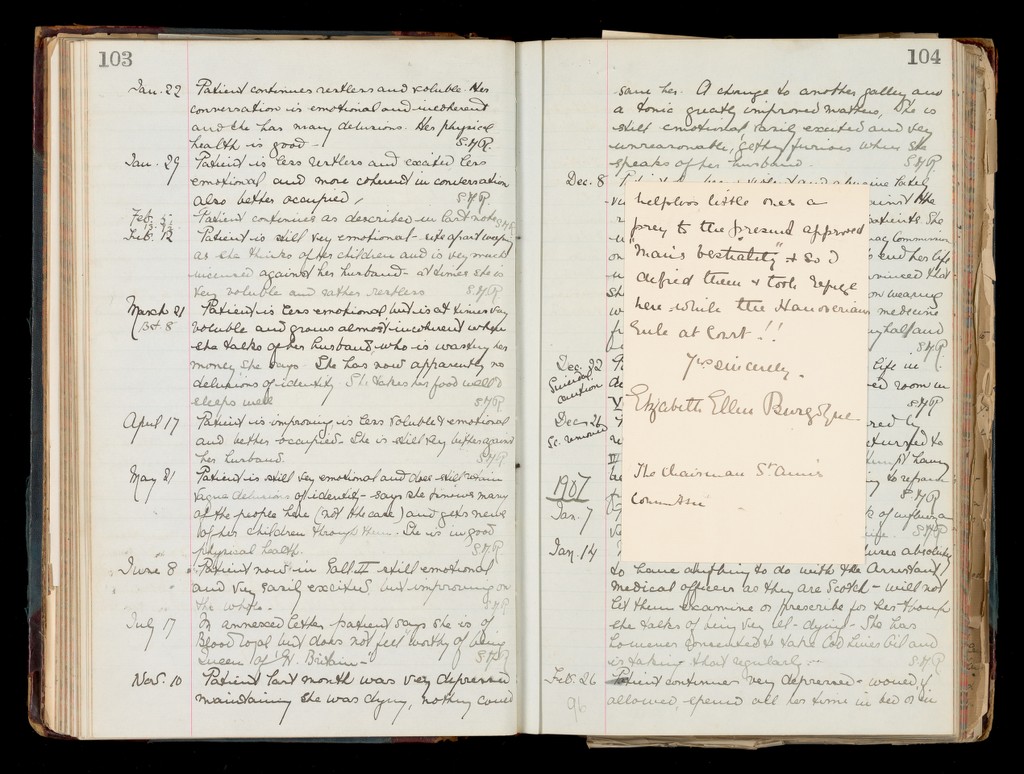 103
Jan. 22 Patient continues restless and voluble. Her
conversation is emotional and incoherent
and she has many delusions. Her physical
health is good -
Jan. 29 Patient is less restless and excited, less
emotional and more coherent in conversation
also better occupied,
Feb. 5 Patient continues as described in last note
Feb. 12 Patient is still very emotional - sits apart weeping
as she thinks of her children and is very much
incensed against her husband - at times she is
very voluble and rather restless
March 21 Patient is less emotional but is at times very
voluble and grows almost incoherent when
she talks of her husband, who is wasting her
money she says. She has now apparently no
delusions of identity. She takes her food well &
sleeps well
April 17 Patient is improving is less voluble & emotional
and better occupied. She is still very bitter against
her husband.
May 21 Patient is still very emotional and does still retain
vague delusions of identity - says she knows many
of the people here (not the case) and gets news
of her children through them. She is in good
physical health.
June 8 Patient now in Gall II still emotional
and very easily excited, but improving on
the whole.
July 17 In annexed letter patient says she is of
Blood Royal but does not feel worthy of being
Queen of Gt. Britain -
Nov. 10 Patient last month was very depressed
maintaining she was dying, nothing could
104
save her. A change to another gallery and
a tonic greatly improved matters, She is
still emotional easily excited and very
unreasonable, getting furious when she
speaks of her husband.
Dec. 8
helpless little ones a
prey to the present approved
"Man's bestiality" & so I
defied them & took refuge
here - while the Hanoverians
rule at Court!!
Yrs sincerely.
Elizabeth Ellen Burgoyne
The Chairman St Ann's
Committee
Commission
end her life
wearing
medicine
half and
Dec. 22 life in
Suicidal caution room in
Dec. 26
Sc. removed returned to
having
to refrain
1907
Jan. 7
Jan. 14 absolutely
to have anything to do with the Assistant
medical officers as they are Scotch - will not
let them examine or prescribe for her though
she talks of being very ill - dying - She has
however consented to take Cod Liver Oil and
is taking that regularly -
Feb. 26 Patient continues very depressed - would if
allowed, spend all her time in bed or in